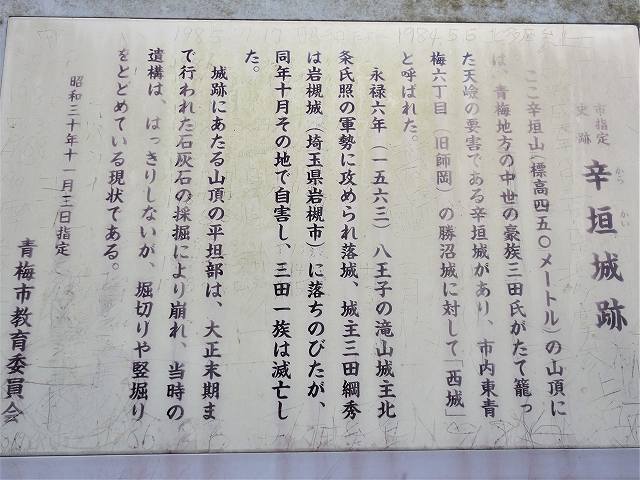 市指定
史跡
辛垣城跡
から かい
ここ辛垣山(標高四五〇メートル)の山頂に
は、青梅地方の中世の豪族三田氏がたて籠っ
た天嶮の要害である辛垣城があり、市内東青
梅六丁目(旧師岡)の勝沼城に対して「西城」
と呼ばれた。
永禄六年(一五六三)八王子の滝山城主北
条氏照の軍勢に攻められ落城、城主三田綱秀
は岩槻城(埼玉県岩槻市)に落ちのびたが、
同年十月その地で自害し、三田一族は滅亡し
た。
城跡にあたる山頂の平坦部は、大正末期ま
で行われた石灰石の採掘により崩れ、当時の
遺構は、はっきりしないが、堀切りや竪堀り
をとどめている現状である。
昭和三十年十一月三日指定
青梅市教育委員会